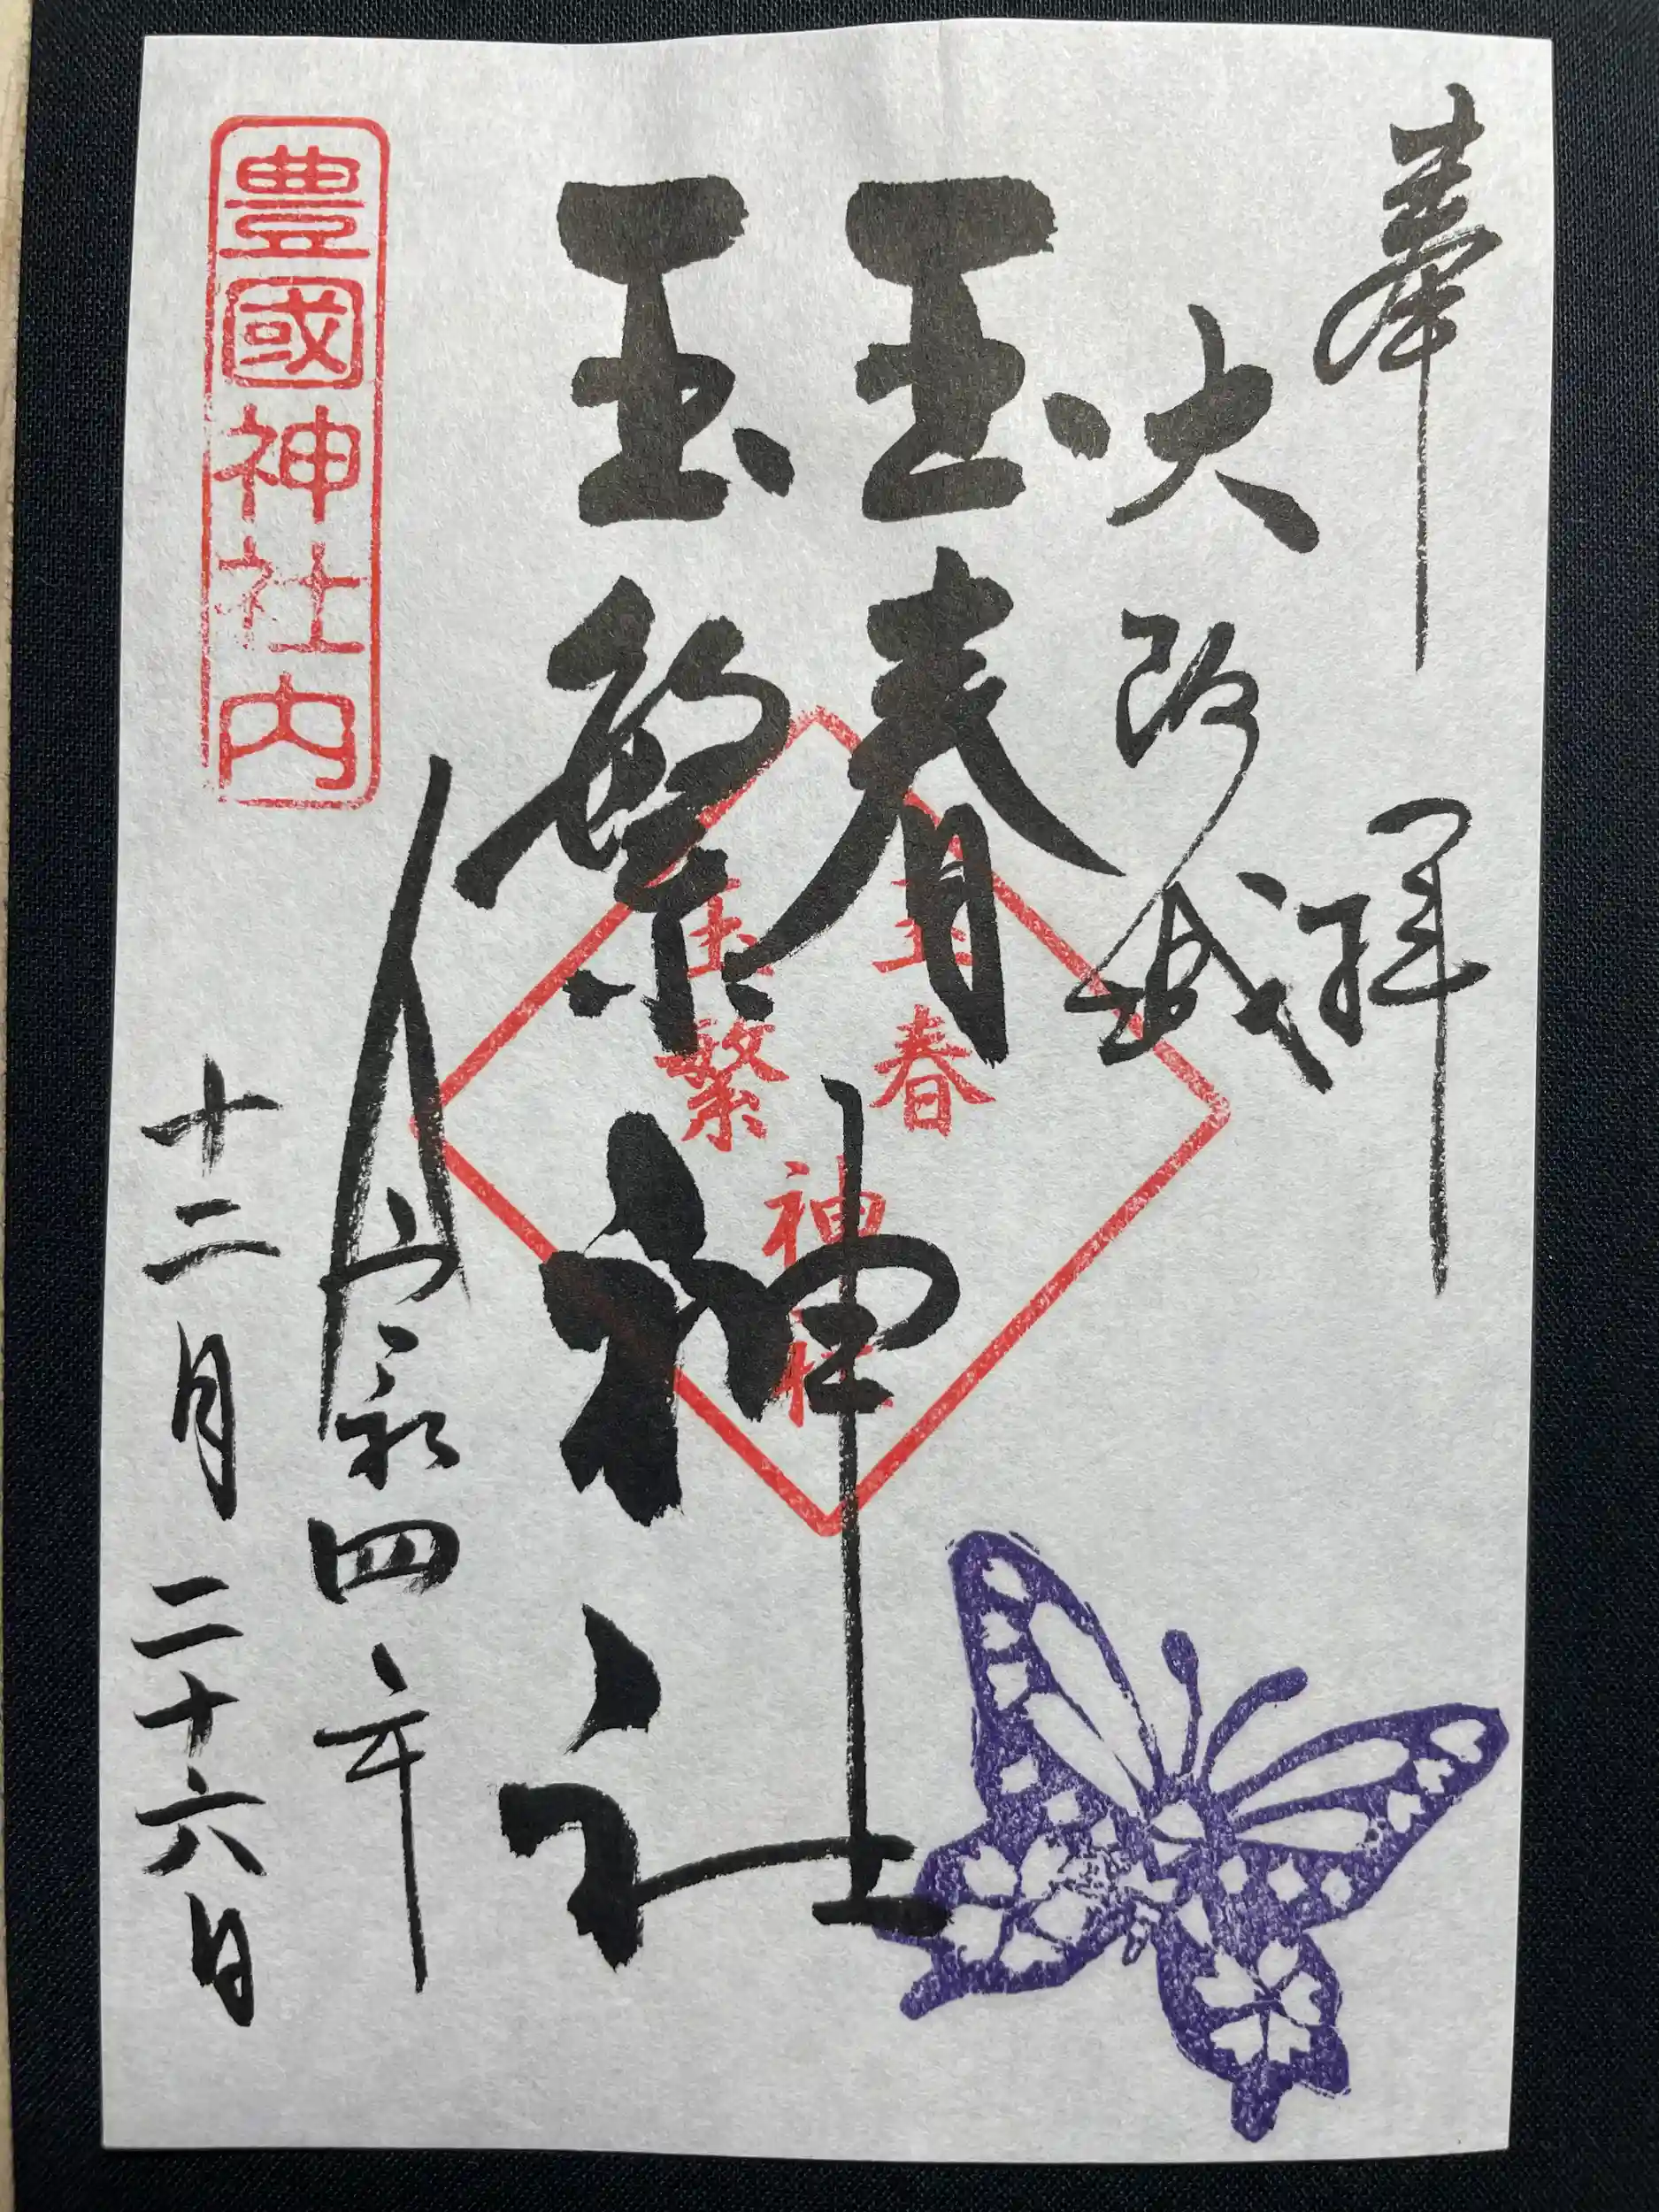 奉拝
大阪城
玉春
玉繁
神社
令和四年
十二月二十六日
豊國神社内
玉春
玉繁
神社